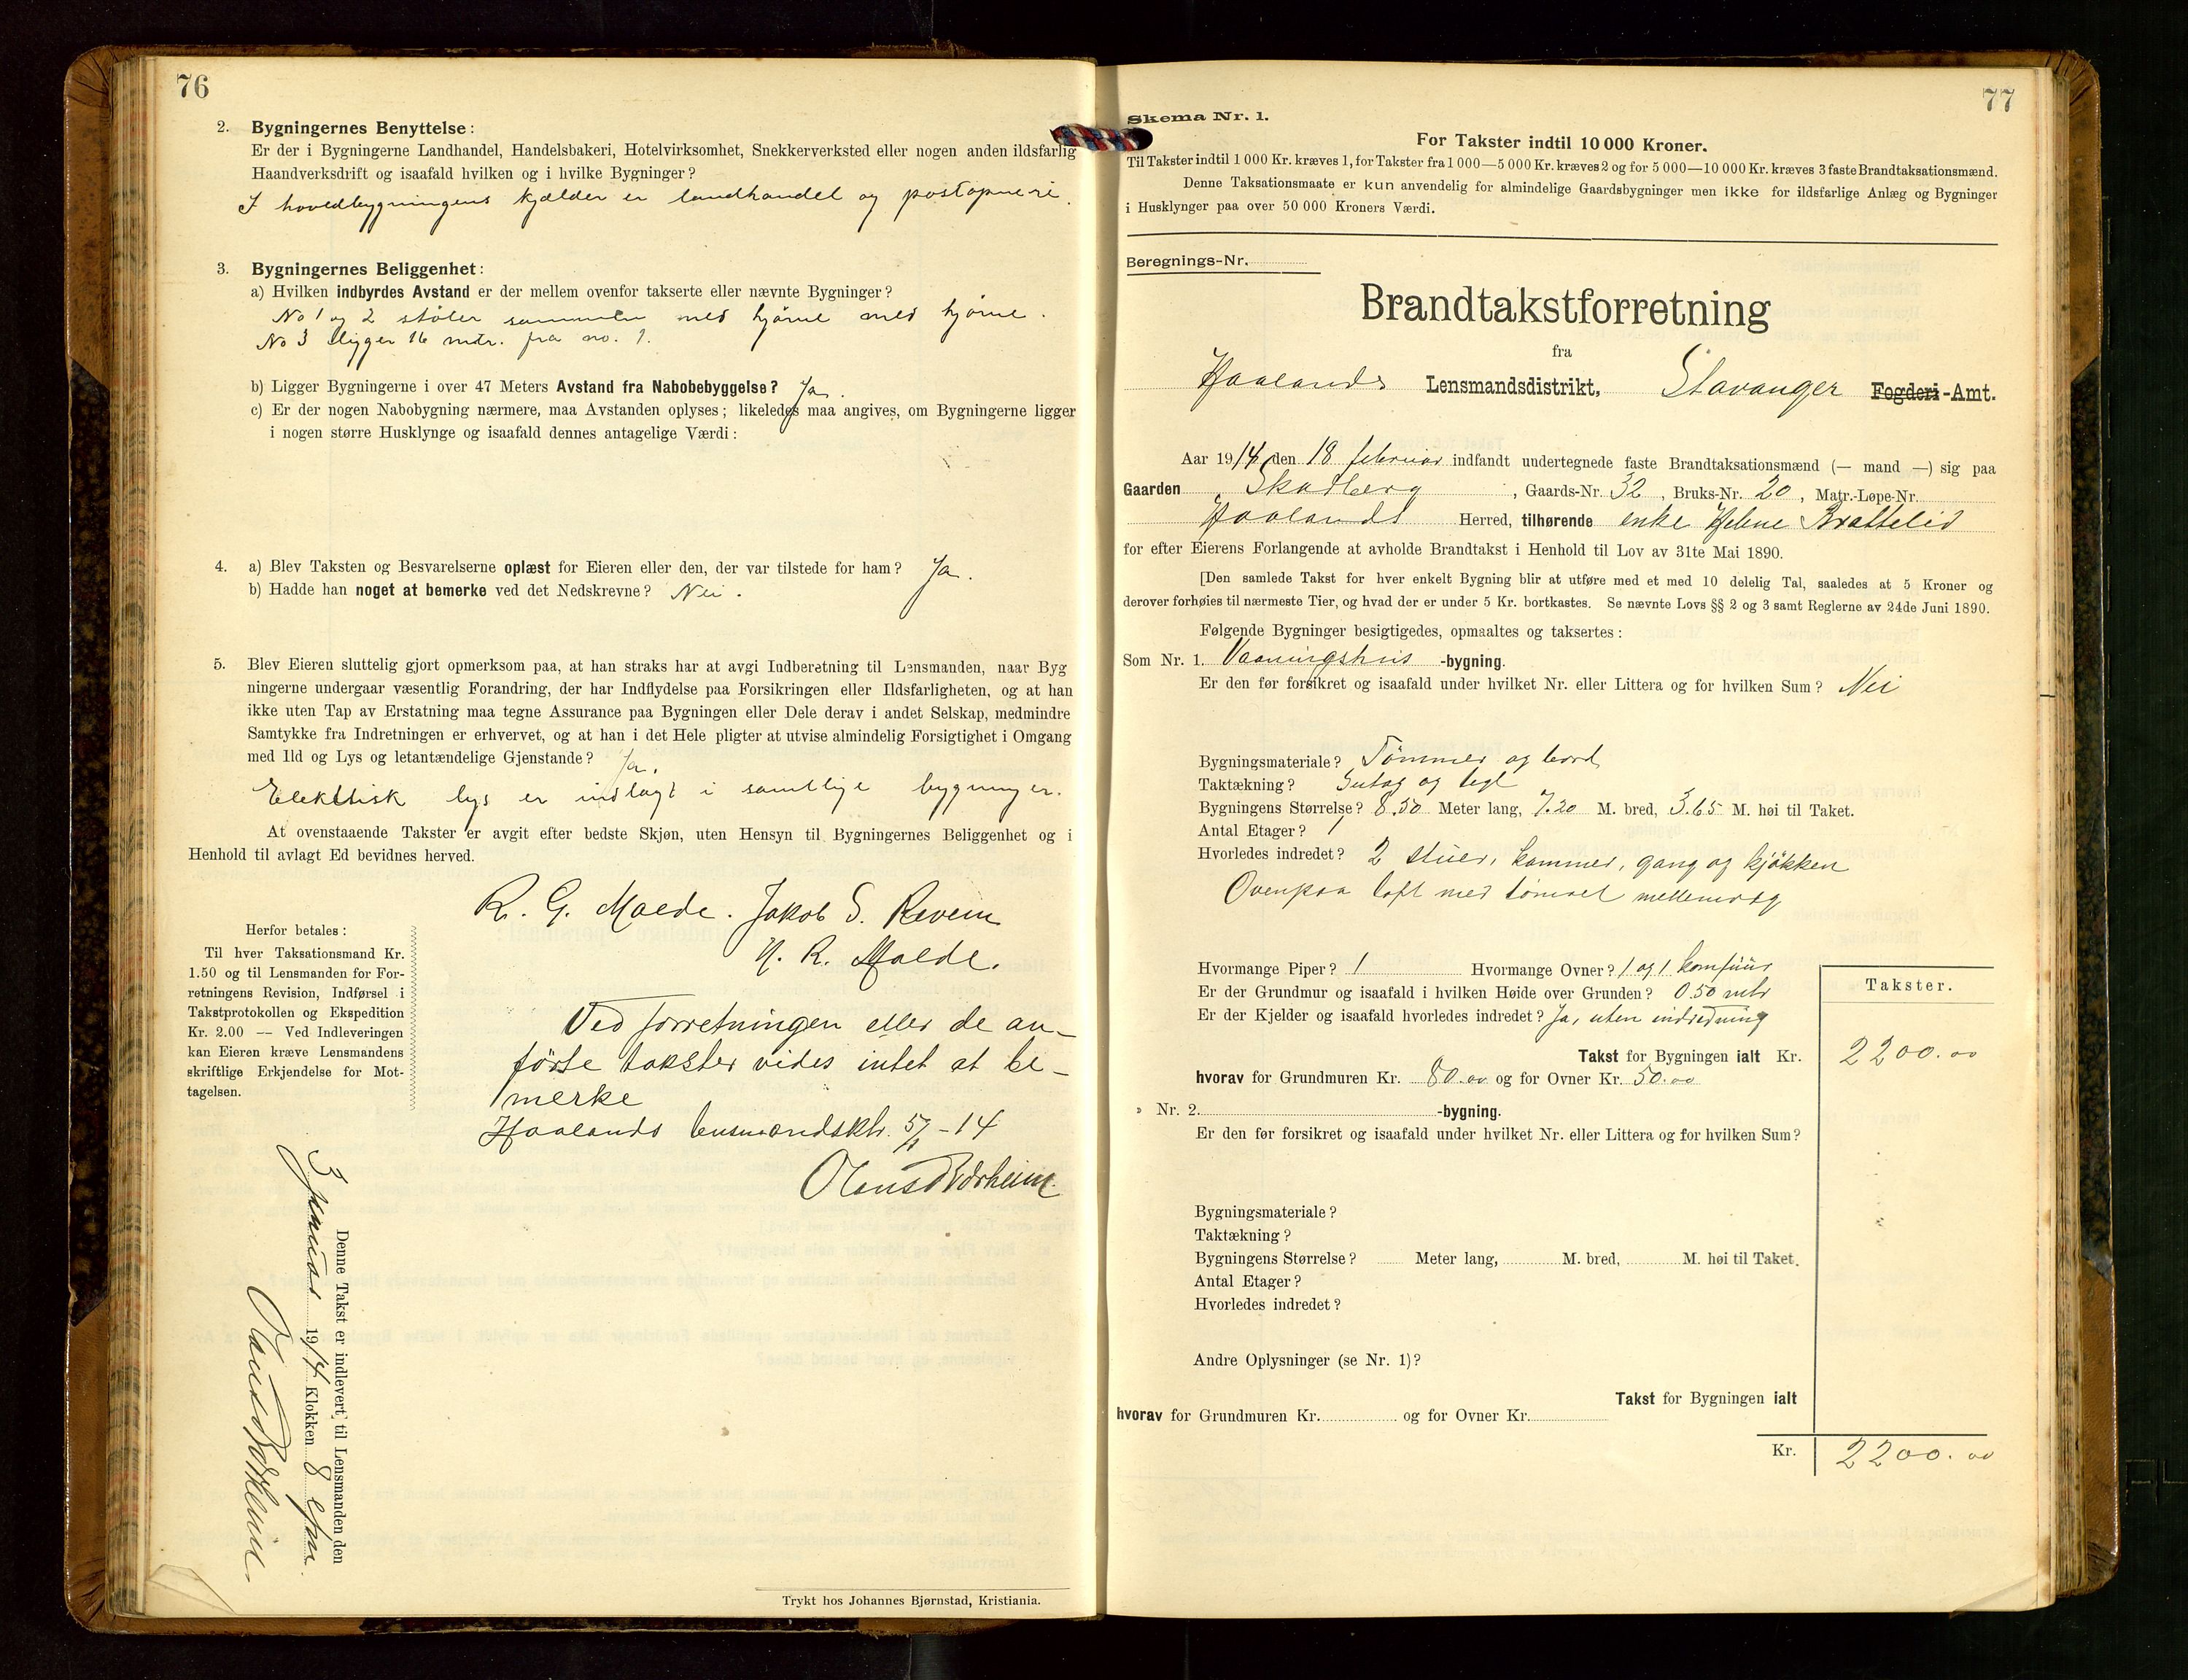 76
2. Bygningernes Benyttelse:
Er der i Bygningerne Landhandel, Handelsbakeri, Hotelvirksomhet, Snekkerverksted eller nogen anden ildsfarlig
Haandverksdrift og isaafald hvilken og i hvilke Bygninger?
I hovedbygningens kjælder er landhandel og postopneri.
3. Bygningernes Beliggenhet:
a) Hvilken indbyrdes Avstand er der mellem ovenfor takserte eller nævnte Bygninger?
No 1 og 2 støter sammen med hjørne med hjørne.
No 3 ligger 16 mtr. fra no. 1.
b) Ligger Bygningerne i over 47 Meters Avstand fra Nabobebyggelse? Ja.
c) Er der nogen Nabobygning nærmere, maa Avstanden oplyses; likeledes maa angives, om Bygningerne ligger
i nogen større Husklynge og isaafald dennes antagelige Værdi:
4. a) Blev Taksten og Besvarelserne oplæst for Eieren eller den, der var tilstede for ham? Ja.
b) Hadde han noget at bemerke ved det Nedskrevne? Nei.
5. Blev Eieren sluttelig gjort opmerksom paa, at han straks har at avgi Indberetning til Lensmanden, naar Byg
ningerne undergaar væsentlig Forandring, der har Indflydelse paa Forsikringen eller Ildsfarligheten, og at han
ikke uten Tap av Erstatning maa tegne Assurance paa Bygningen eller Dele derav i andet Selskap, medmindre
Samtykke fra Indretningen er erhvervet, og at han i det Hele pligter at utvise almindelig Forsigtighet i Omgang
med Ild og Lys og letantændelige Gjenstande? Ja.
Elektrisk lys er indlagt i samtlige bygninger.
At ovenstaaende Takster er avgit efter bedste Skjøn, uten Hensyn til Bygningernes Beliggenhet og i
Henhold til avlagt Ed bevidnes herved.
R. G. Malde. Jakob S. Revem
N. R. Malde.
Herfor betales:
Til hver Taksationsmand Kr.
1.50 og til Lensmanden for For-
retningens Revision, Indførsel i
Takstprotokollen og Ekspedition
Kr. 2.00 — Ved Indleveringen
kan Eieren kræve Lensmandens
skriftlige Erkjendelse for Mot-
tagelsen.
Ved forretningen eller de an-
førte takster vides intet at be-
merke
Haalands lensmandsktr. 5/1-14
Olaus Børkeim
Denne Takst er indlevert til Lensmanden den
3 januar 1914 Klokken 8 efm.
Olaus Børkeim.
Trykt hos Johannes Bjørnstad, Kristiania.
77
Skema Nr. 1.
For Takster indtil 10 000 Kroner.
Til Takster indtil 1 000 Kr. kræves 1, for Takster fra 1 000—5 000 Kr. kræves 2 og for 5 000—10 000 Kr. kræves 3 faste Brandtaksationsmænd.
Denne Taksationsmaate er kun anvendelig for almindelige Gaardsbygninger men ikke for ildsfarlige Anlæg og Bygninger
i Husklynger paa over 50 000 Kroners Værdi.
Beregnings-Nr.
Brandtakstforretning
fra
Haalands Lensmandsdistrikt, Stavanger Fogderi-Amt.
Aar 1914 den 18 februar indfandt undertegnede faste Brandtaksationsmænd (— mand —) sig paa
Gaarden Skadberg, Gaards-Nr. 32, Bruks-Nr. 20, Matr.-Løpe-Nr.
Haalands Herred, tilhørende enke Helene Brattelid
for efter Eierens Forlangende at avholde Brandtakst i Henhold til Lov av 31te Mai 1890.
[Den samlede Takst for hver enkelt Bygning blir at utføre med et med 10 delelig Tal, saaledes at 5 Kroner og
derover forhøies til nærmeste Tier, og hvad der er under 5 Kr. bortkastes. Se nævnte Lovs §§ 2 og 3 samt Reglerne av 24de Juni 1890.
Følgende Bygninger besigtigedes, opmaaltes og taksertes:
Som Nr. 1. Vaaningshus -bygning.
Er den før forsikret og isaafald under hvilket Nr. eller Littera og for hvilken Sum? Nei
Bygningsmateriale? Tømmer og bord
Taktækning? Sutag og tegl
Bygningens Størrelse? 8.50 Meter lang, 7.20 M. bred, 3.65 M. høi til Taket.
Antal Etager? 1
Hvorledes indredet? 2 stuer, kammer, gang og kjøkken
Ovenpaa loft med tømret mellemvæg
Hvormange Piper? 1 Hvormange Ovner? 1 og 1 komfuur
Er der Grundmur og isaafald i hvilken Høide over Grunden? 0.50 mtr
Er der Kjelder og isaafald hvorledes indredet? Ja, uten indredning
Takster.
Takst for Bygningen ialt Kr. 2200.00
hvorav for Grundmuren Kr. 80.00 og for Ovner Kr. 50.00
» Nr. 2. -bygning.
Er den før forsikret og isaafald under hvilket Nr. eller Littera og for hvilken Sum?
Bygningsmateriale?
Taktækning?
Bygningens Størrelse? Meter lang, M. bred, M. høi til Taket.
Antal Etager?
Hvorledes indredet?
Andre Oplysninger (se Nr. 1)?
Takst for Bygningen ialt
hvorav for Grundmuren Kr. og for Ovner Kr.
Kr. 2200.00